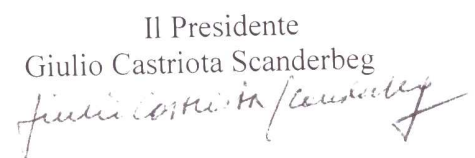 Il Presidente
Giulio Castriota Scanderbeg
Giulio Castriota Scanderbeg